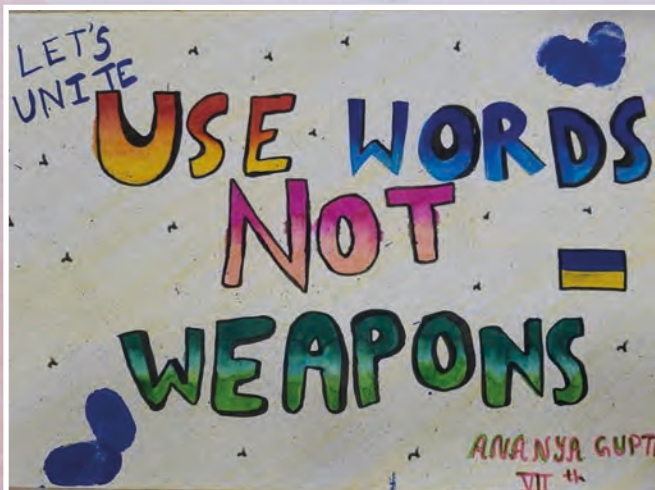 LET'S
UNITE
USE WORDS
NOT
WEAPONS
ANANYA GUPT
VII th